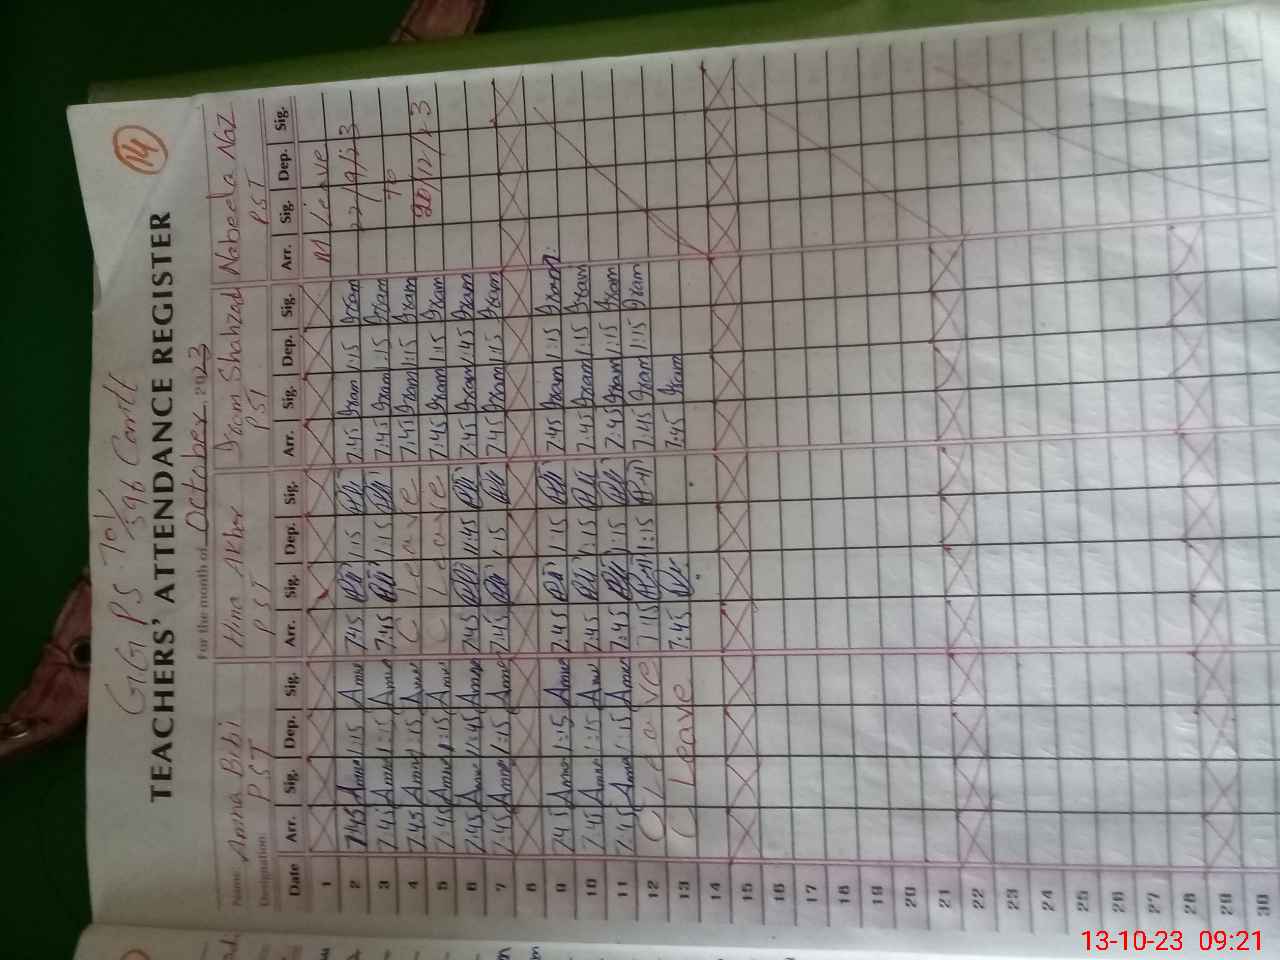 14
GGPS 701/396 Cantt
TEACHERS' ATTENDANCE REGISTER
For the month of October 2023
Name: Amna Bibi Hina Akbar Iram Shahzad Nabeela Naz
Designation PST PST PST PST
Date Arr. Sig. Dep. Sig. Arr. Sig. Dep. Sig. Arr. Sig. Dep. Sig. Arr. Sig. Dep. Sig.
1 M Leave
2 7:45 Amna 1:15 Amna 7:45 1:15 7:45 Iram 1:15 Iram 22/9/23
3 7:45 Amna 1:15 Amna 7:45 1:15 7:45 Iram 1:15 Iram To
4 7:45 Amna 1:15 Amna C Leave 7:45 Iram 1:15 Iram 20/12/23
5 7:45 Amna 1:15 Amna C Leave 7:45 Iram 1:15 Iram
6 7:45 Amna 11:45 Amna 7:45 11:45 7:45 Iram 1:45 Iram
7 7:45 Amna 1:15 Amna 7:45 1:15 7:45 Iram 1:15 Iram
8
9 7:45 Amna 1:15 Amna 7:45 1:15 7:45 Iram 1:15 Iram
10 7:45 Amna 1:15 Amna 7:45 1:15 7:45 Iram 1:15 Iram
11 7:45 Amna 1:15 Amna 7:45 1:15 7:45 Iram 1:15 Iram
12 C Leave 7:45 1:15 7:45 Iram 1:15 Iram
13 C Leave 7:45 7:45 Iram
14
15
16
17
18
19
20
21
22
23
24
25
26
27
28
29
30
13-10-23 09:21